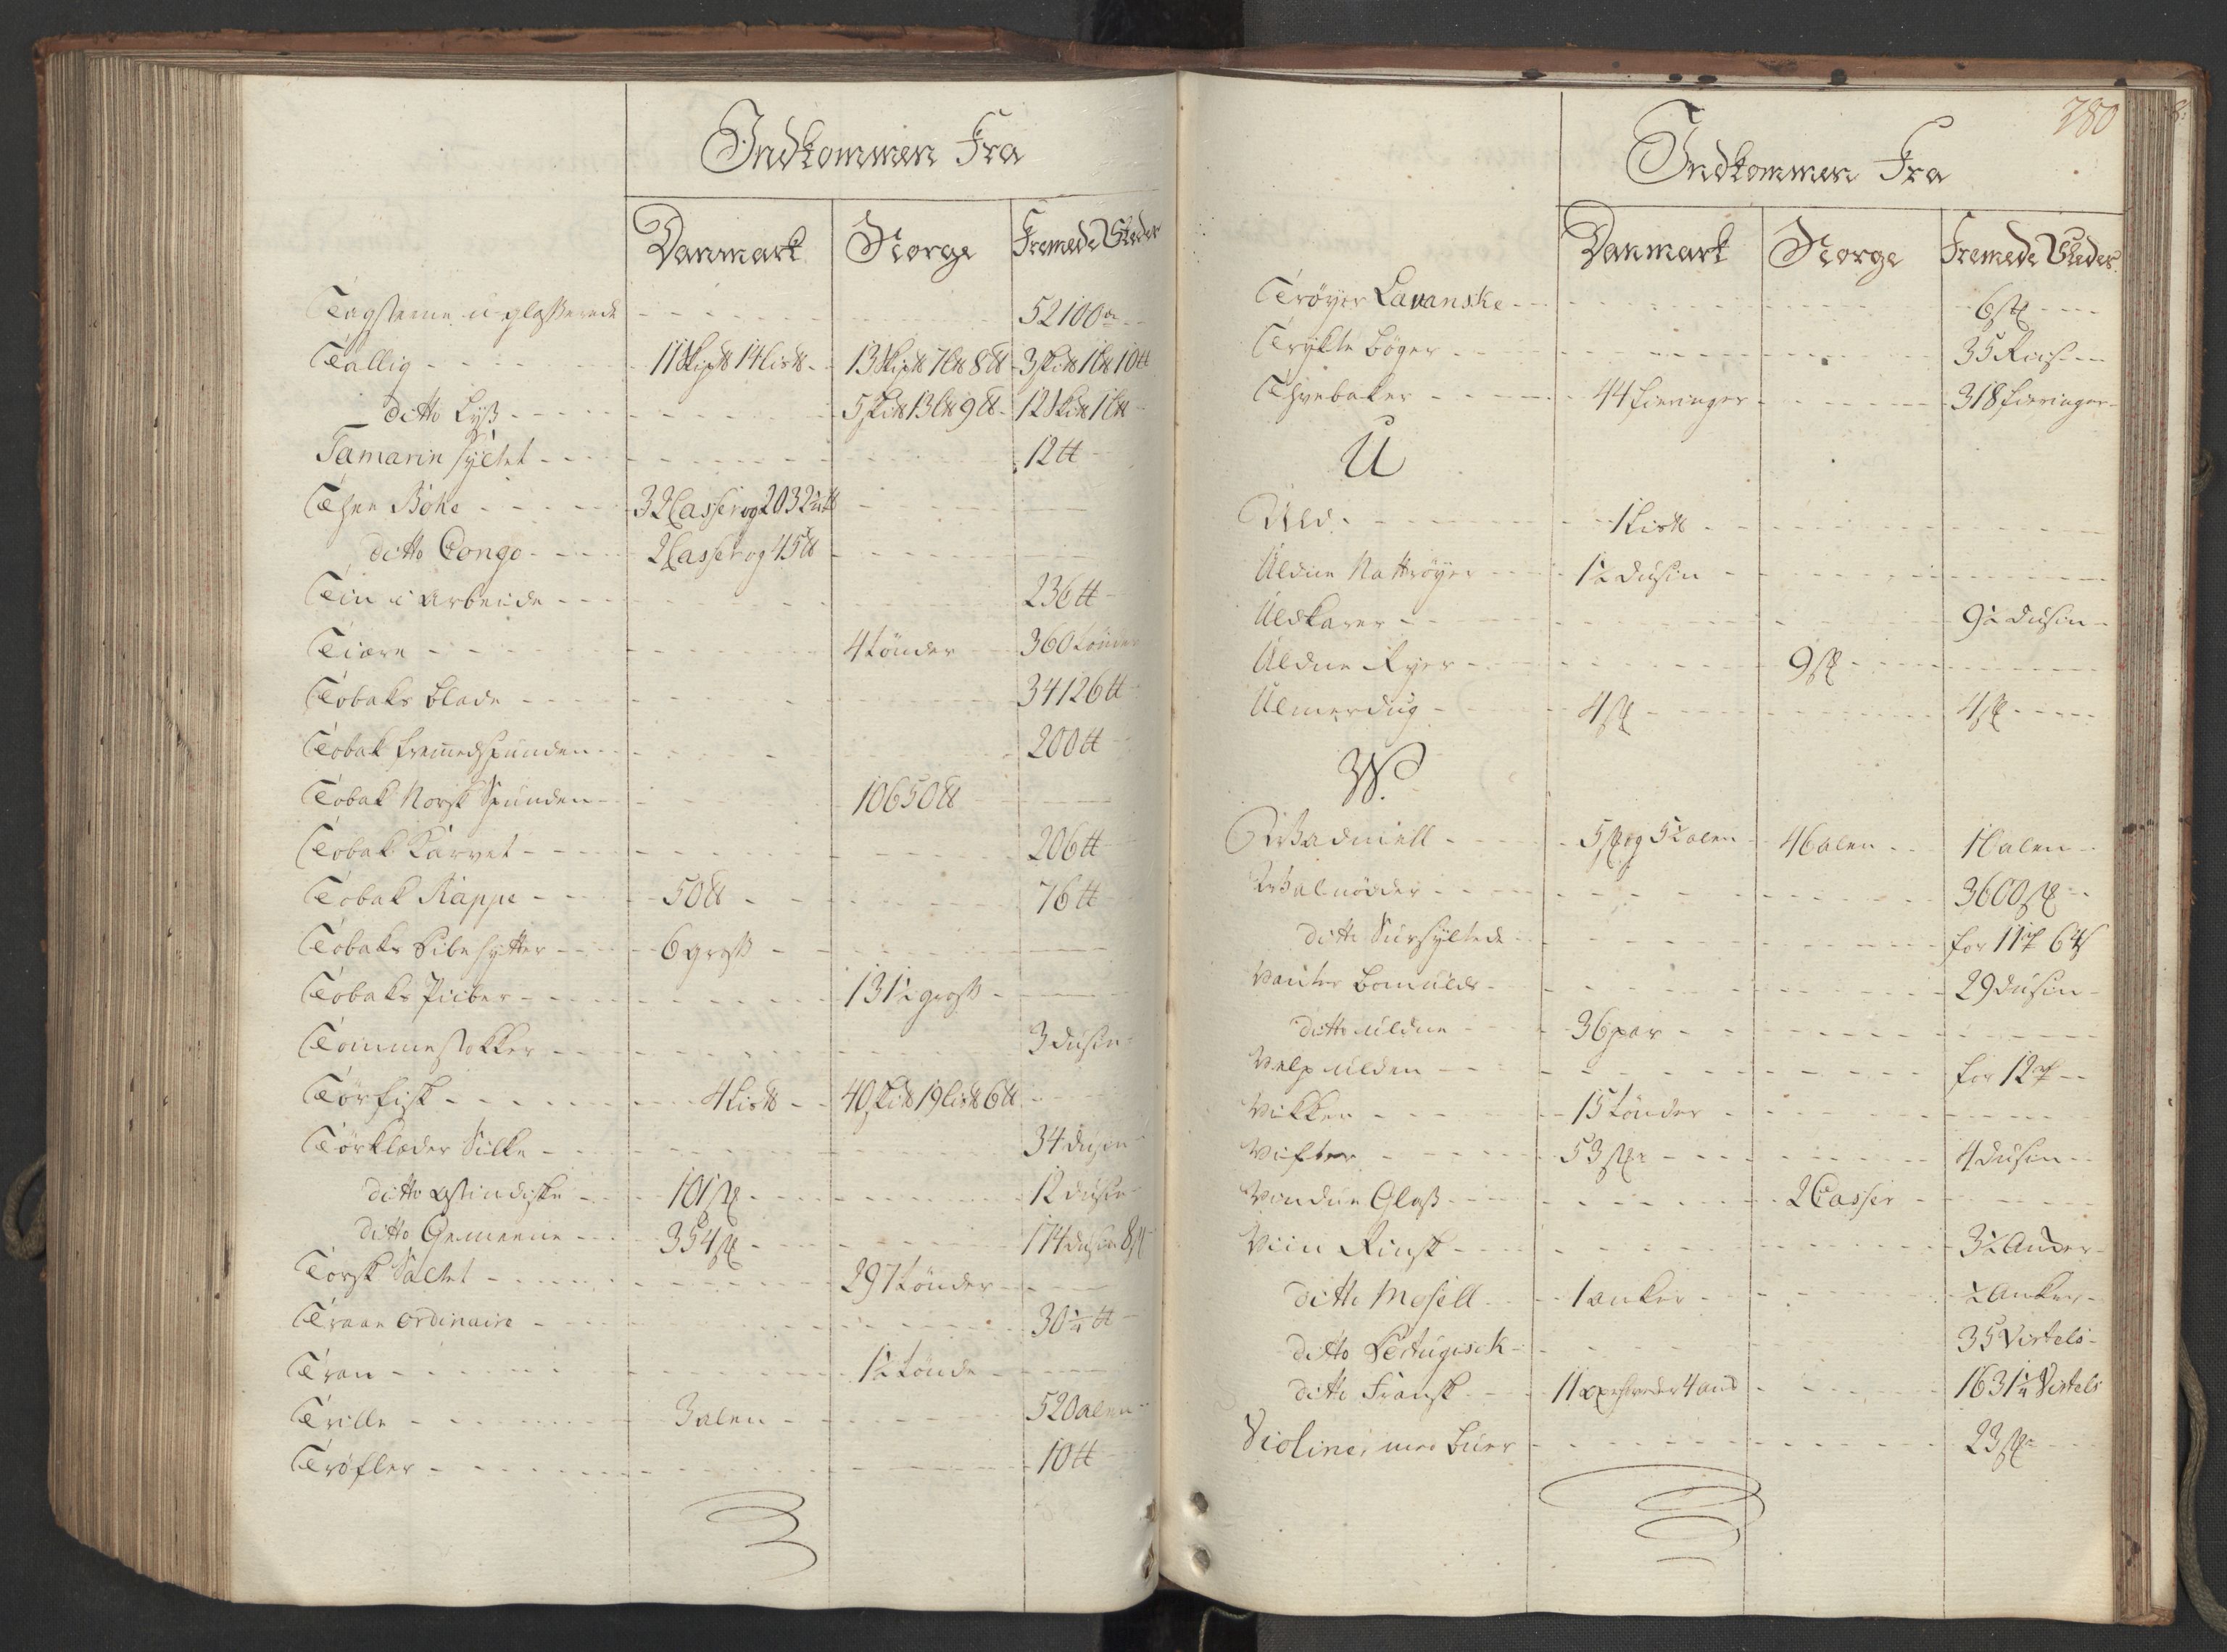 Indkommen Fra
Danmark Norge Fremede Steder
Tagsteene u-glasserede 52100de
Tallig 11 Skip℔ 14 Lis℔ 13 Skip℔ 7 L℔ 8 ℔ 3 Ski℔ 1 L℔ 10 ℔
ditto Lyß 5 Ski℔ 13 L℔ 9 ℔ 12 Ski℔ 1 L℔
Tamarin syltet 12 ℔
Thee Bohe 32 Casser og 2032 ½ ℔
ditto Congo 2 Casser og 45 ℔
Tin i Arbeide 236 ℔
Tiære 4 tønder 360 tønder
Tobaks blade 34126 ℔
Tobak fremedspunden 200 ℔
Tobak Norsk Spunden 10650 ℔
Tobak Karvet 206 ℔
Tobak Rappe 50 ℔ 76 ℔
Tobaks Pibe hytter 6 groß
Tobaks Piiber 131 ½ groß
Tommestokker 3 dusin
Tørfisk 4 Lis℔ 40 Ski℔ 19 Lis℔ 6 ℔
Tørklæder Silke 34 dusin
ditto ostindiske 101 st 12 dusin
ditto Gemeene 354 st 174 dusin 8 st
Torsk Saltet 297 tønder
Traae ordinaire 30 ¼ ℔
Tran 1 ½ tønde
Trille 3 alen 520 alen
Trøfler 10 ℔
280
Indkommen Fra
Danmark Norge Fremede Steder
Trøyer Lavanske 6 st
Trykte bøger 35 Riis
Thvebaker 44 fieringer 318 fieringer
U
Uld 1 Lis℔
Uldne Nattrøyer 1 ½ dusin
Uldkarer 9 ½ dusin
Uldne Ryer 9 st
Ulmerdug 4 st 4 st
W.
Wadmell 5 st og 5 ½ alen 46 alen 16 alen
Walnødder 3600 st
ditto Sursyltede for 11 rd 64 s
Vanter bomulds 29 dusin
ditto uldne 36 par
Velp ulden for 12 rd
Vikker 15 tønder
Vifter 53 st 4 dusin
Vindue Glaß 2 Casser
Viin Rinsk 3 ½ Ancker
ditto Mosell 1 anker ½ Anker
ditto Portugisisk 35 Viertels
ditto Fransk 11 oxehoveder 4 anc 1631 ¼ Viertels
Violiner med buer 23 st